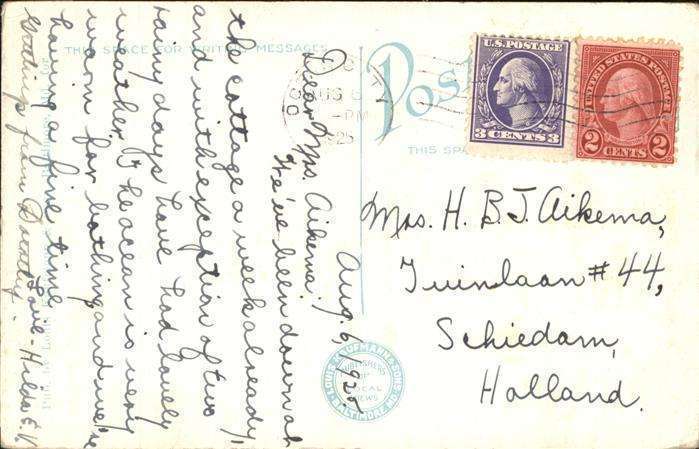 THIS SPACE FOR WRITING MESSAGES
Post
THIS SP
AUG 6
-PM
1925
U.S. POSTAGE
3 CENTS 3
UNITED STATES POSTAGE
2 CENTS 2
Aug. 6, 1925.
Dear Mrs. Aikema:
We've been down at
the cottage a week already,
and with exception of two
rainy days have had lovely
weather. The ocean is very
warm for bathing and we're
having a fine time.
Love - Hilda E. V.
Greetings from Dorothy.
Mrs. H. B. J. Aikema,
Tuinlaan #44,
Schiedam,
Holland.
LOUIS KAUFMANN & SONS
PUBLISHERS
OF
LOCAL
VIEWS
BALTIMORE, MD.